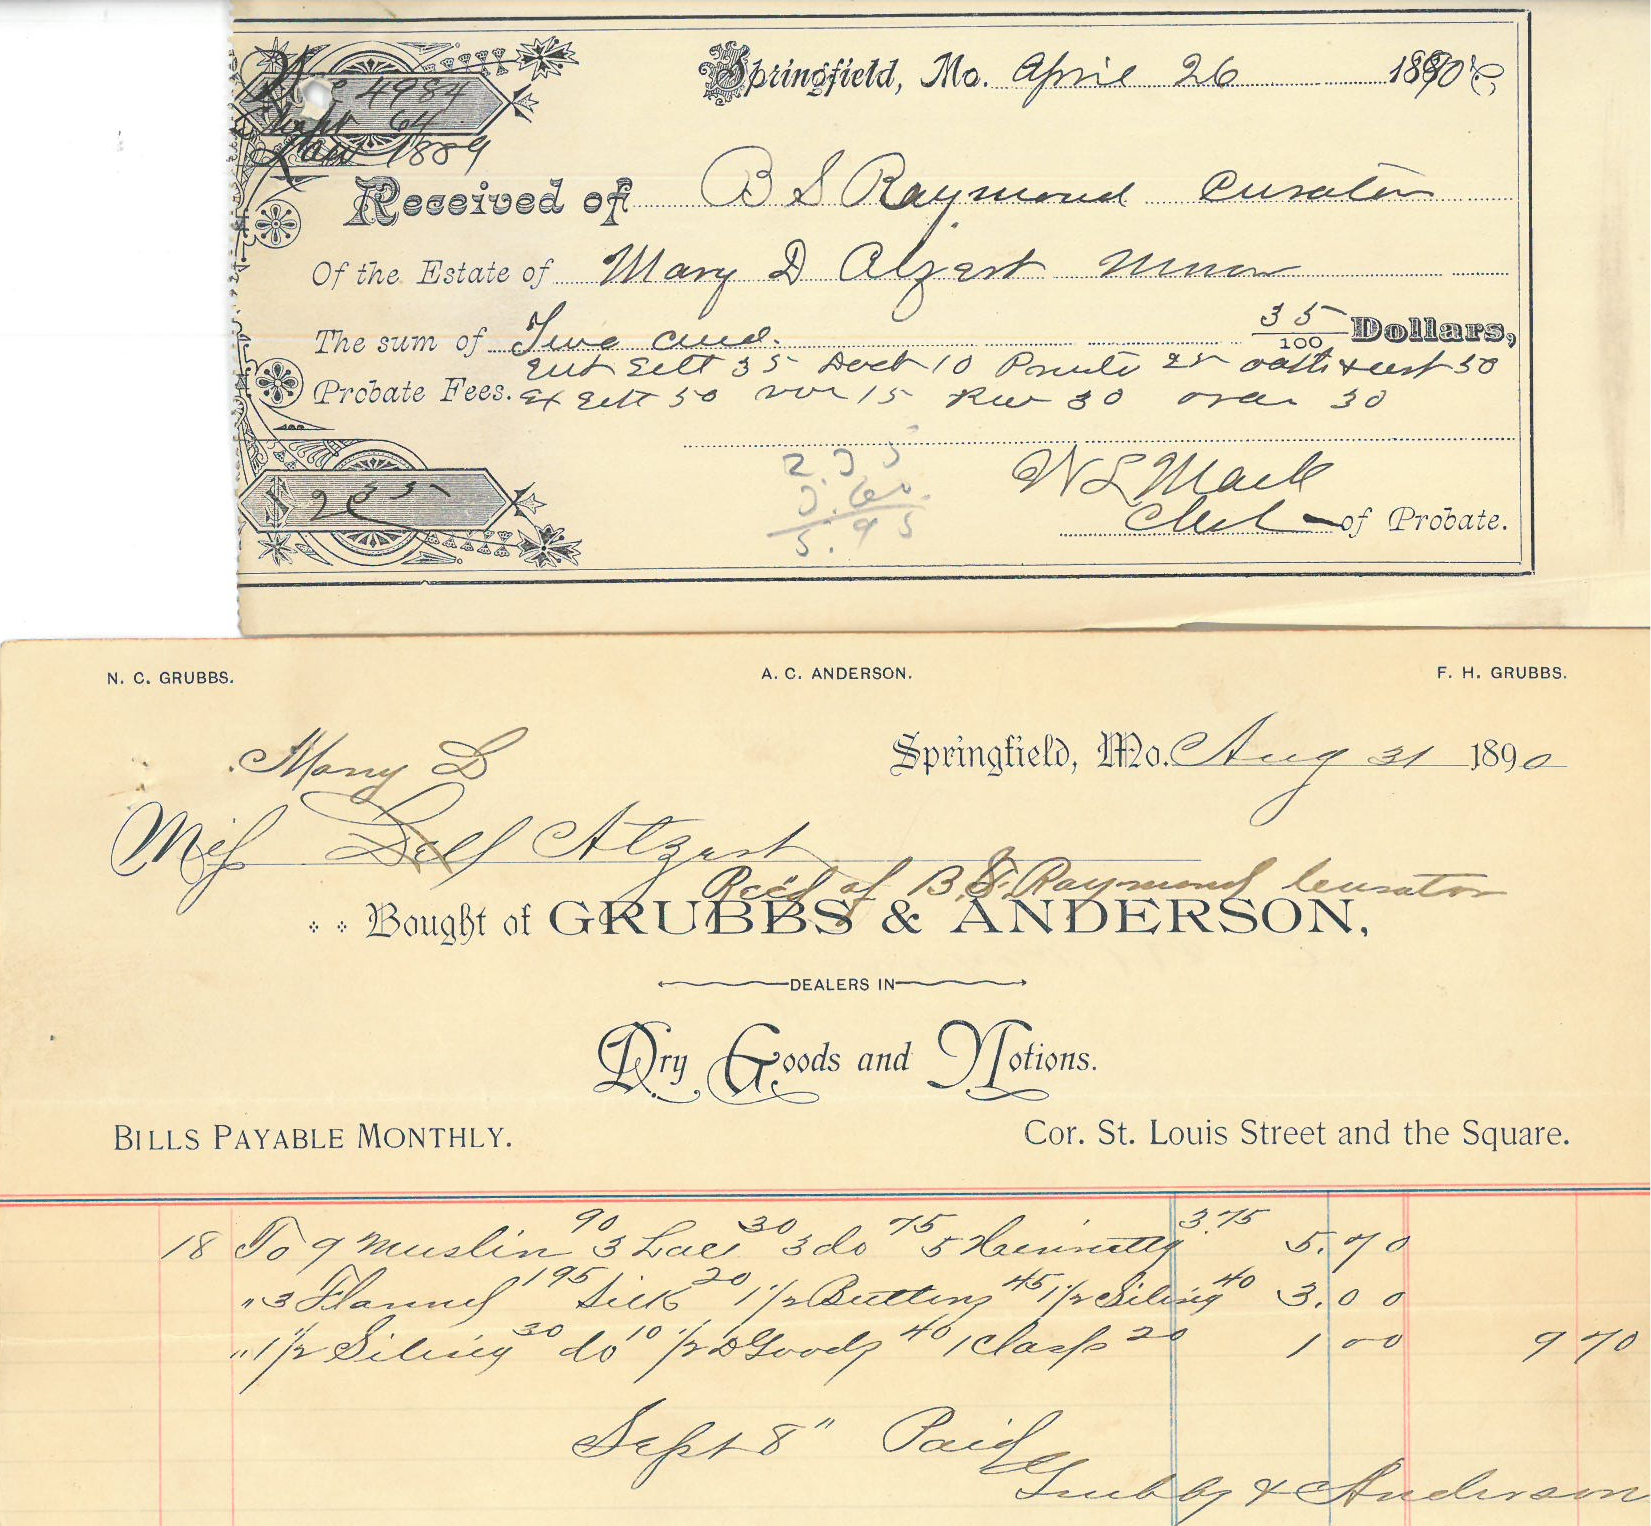 No 4984
Sept 64
1889
Springfield, Mo. April 26 1890
Received of B S Raymond Curator
Of the Estate of Mary D Atzert Minor
The sum of Two and 35/100 Dollars,
Ent Sett 35 Dock 10 25 oath & cert 50
Probate Fees. Ex Sett 50 vou 15 Rec 30 30
2.35
3.60
5.95
$ 2 35
W L Mack
Clerk of Probate.
N. C. GRUBBS. A. C. ANDERSON. F. H. GRUBBS.
Springfield, Mo. Aug 31 1890
Mary D
Miss Dell Atzert
Recd of B. S. Raymond Curator
Bought of GRUBBS & ANDERSON,
DEALERS IN
Dry Goods and Notions.
BILLS PAYABLE MONTHLY. Cor. St. Louis Street and the Square.
18 To 9 Muslin 90 3 Lace 30 3 do 75 5 Henrietta 3.75 5.70
" 3 Flannel 195 Silk 20 1 1/2 Buttons 45 1 1/2 Silisia 40 3.00
" 1 1/2 Silisia 30 do 10 1/2 D Goods 40 1 Clasp 20 1 00 9 70
Sept 8" Paid
Grubbs & Anderson